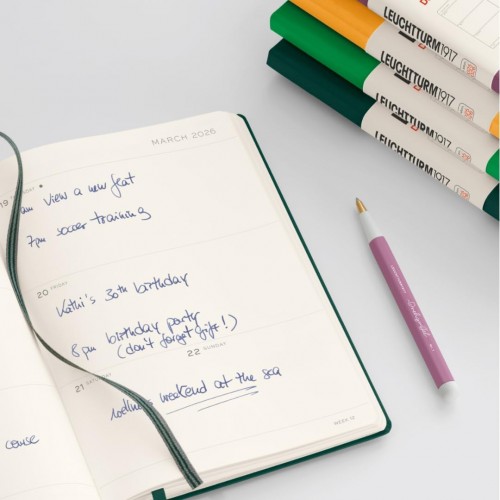 MARCH 2026
19
am view a new flat
7pm soccer training
20 FRIDAY
Kathi's 30th birthday
8pm birthday party
(don't forget gift!)
21 SATURDAY
22 SUNDAY
weekend at the sea
WEEK 12
course
LEUCHTTURM1917
LEUCHTTURM1917
LEUCHTTURM1917
LEUCHTTURM1917